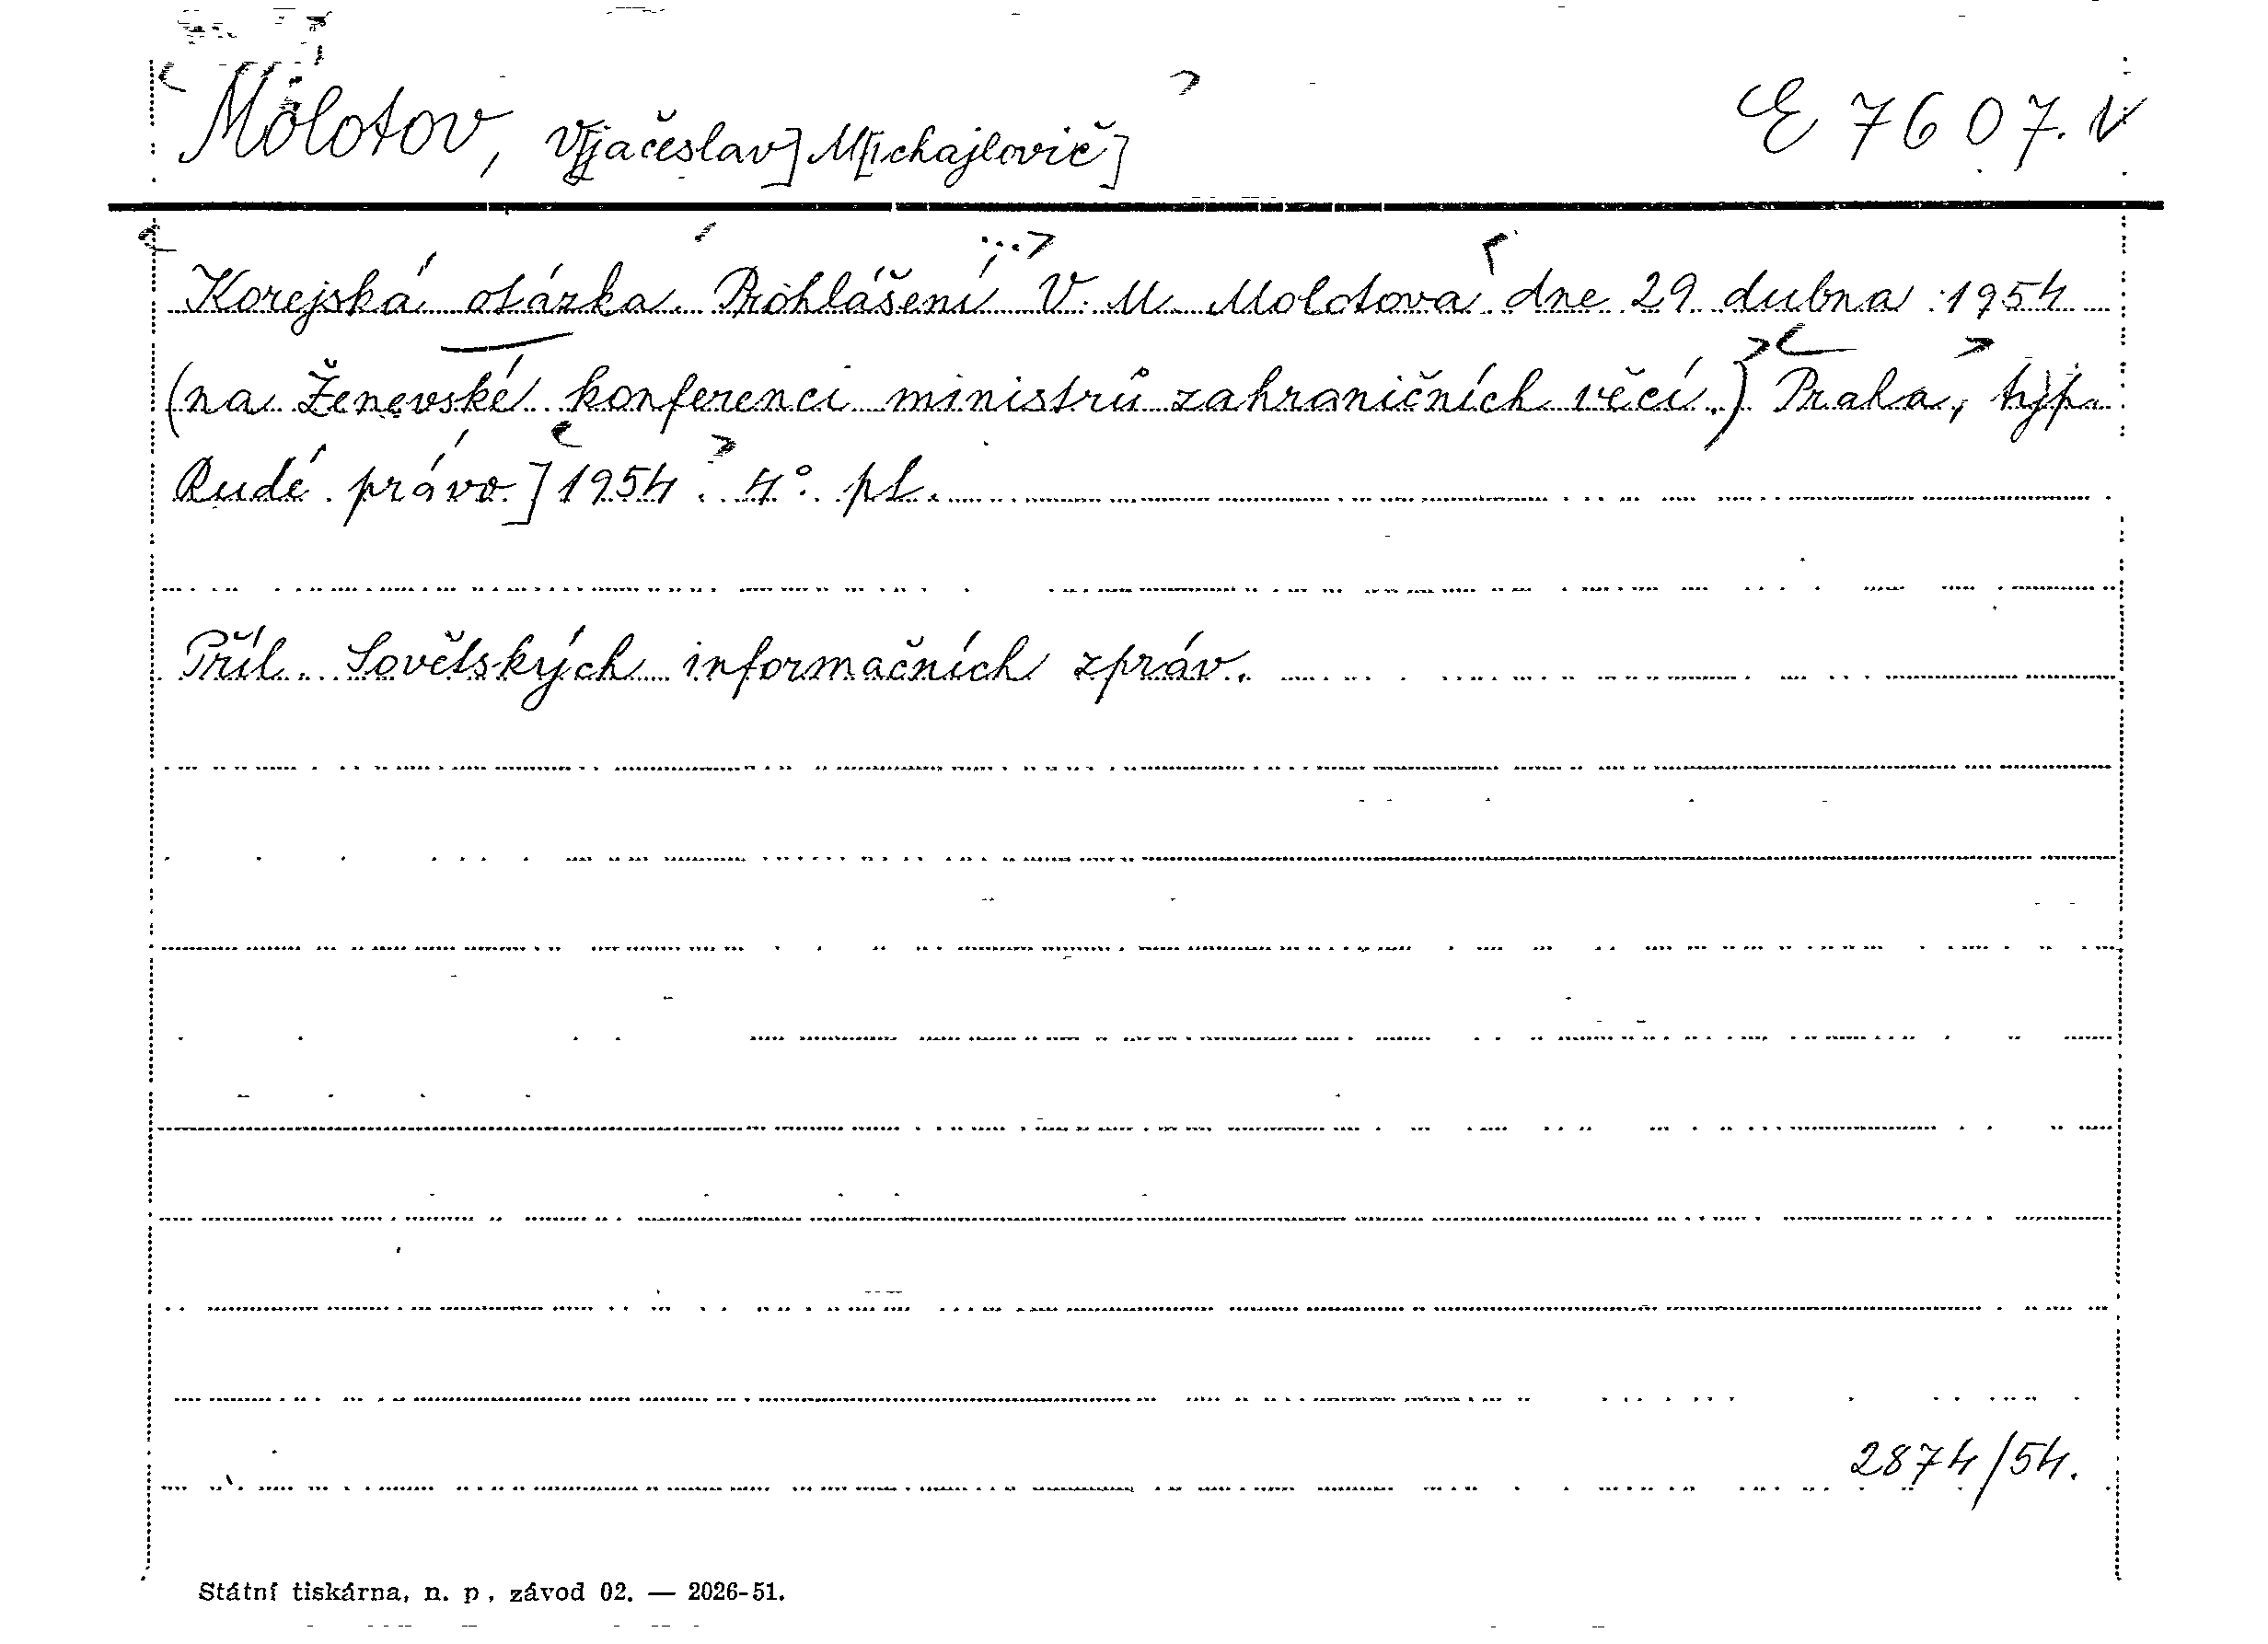 Molotov, V[jačeslav] M[ichajlovič]
E 7607.
Korejská otázka. Prohlášení V. M. Molotova dne 29 dubna 1954
(na Ženevské konferenci ministrů zahraničních věcí.) Praha, typ.
Rudé právo] 1954. 4° pl.
Příl. Sovětských informačních zpráv.
2874/54.
Státní tiskárna, n. p., závod 02. — 2026-51.